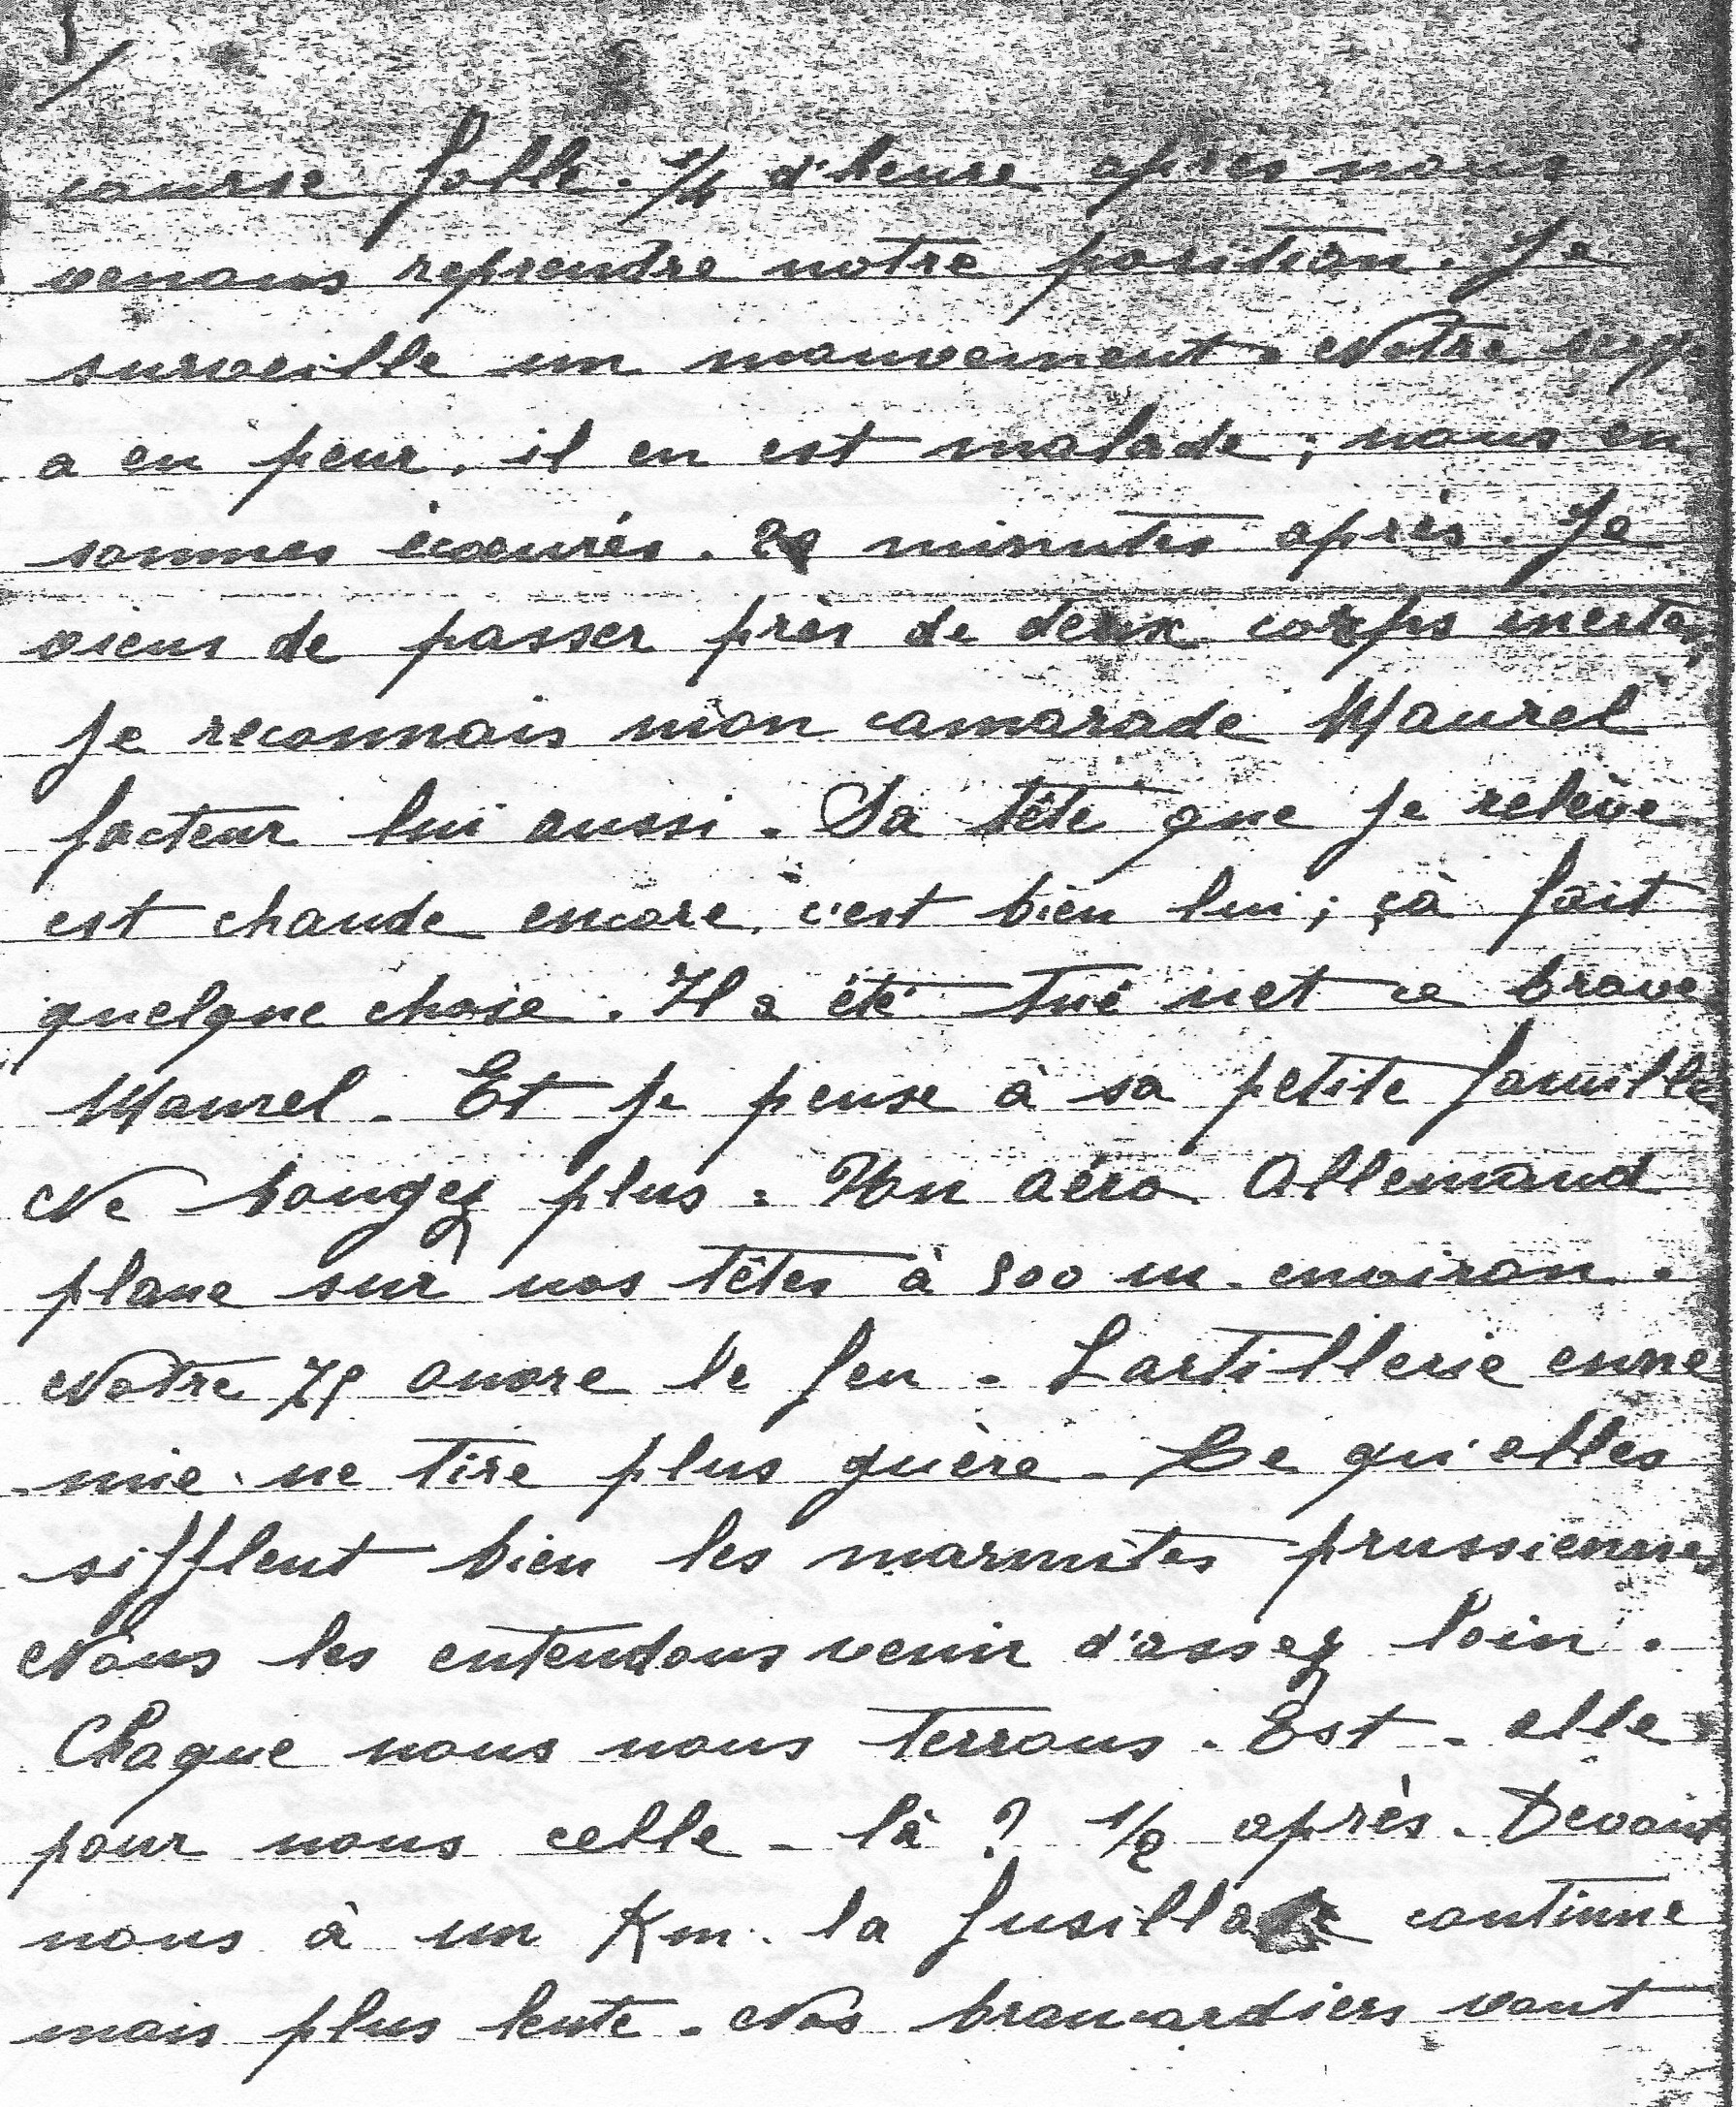 course folle. 1/4 d'heure après nous
venons reprendre notre position. Je
surveille un mouvement. Notre serg.
a eu peur, il en est malade ; nous en
sommes écoeurés. minutes après. Je
viens de passer près de deux corps inertes
Je reconnais mon camarade Maurel
facteur lui aussi. Sa tête que je relève
est chaude encore, c'est bien lui ; çà fait
quelque chose. Il a été tué net ce brave
Maurel. Et je pense à sa petite famille
Ne bougez plus. Un aéro Allemand
plane sur nos têtes à 500 m. environ.
Notre 75 ouvre le feu. Lartillerie enne
mie ne tire plus guère. Ce qu'elles
sifflent bien les marmites prussiennes
Nous les entendons venir d'assez loin.
Chaque nous nous terrons. Est-elle
pour nous celle-là ? 1/2 après. Devant
nous à un Km. la fusillade continue
mais plus lente. Nos brancardiers vont